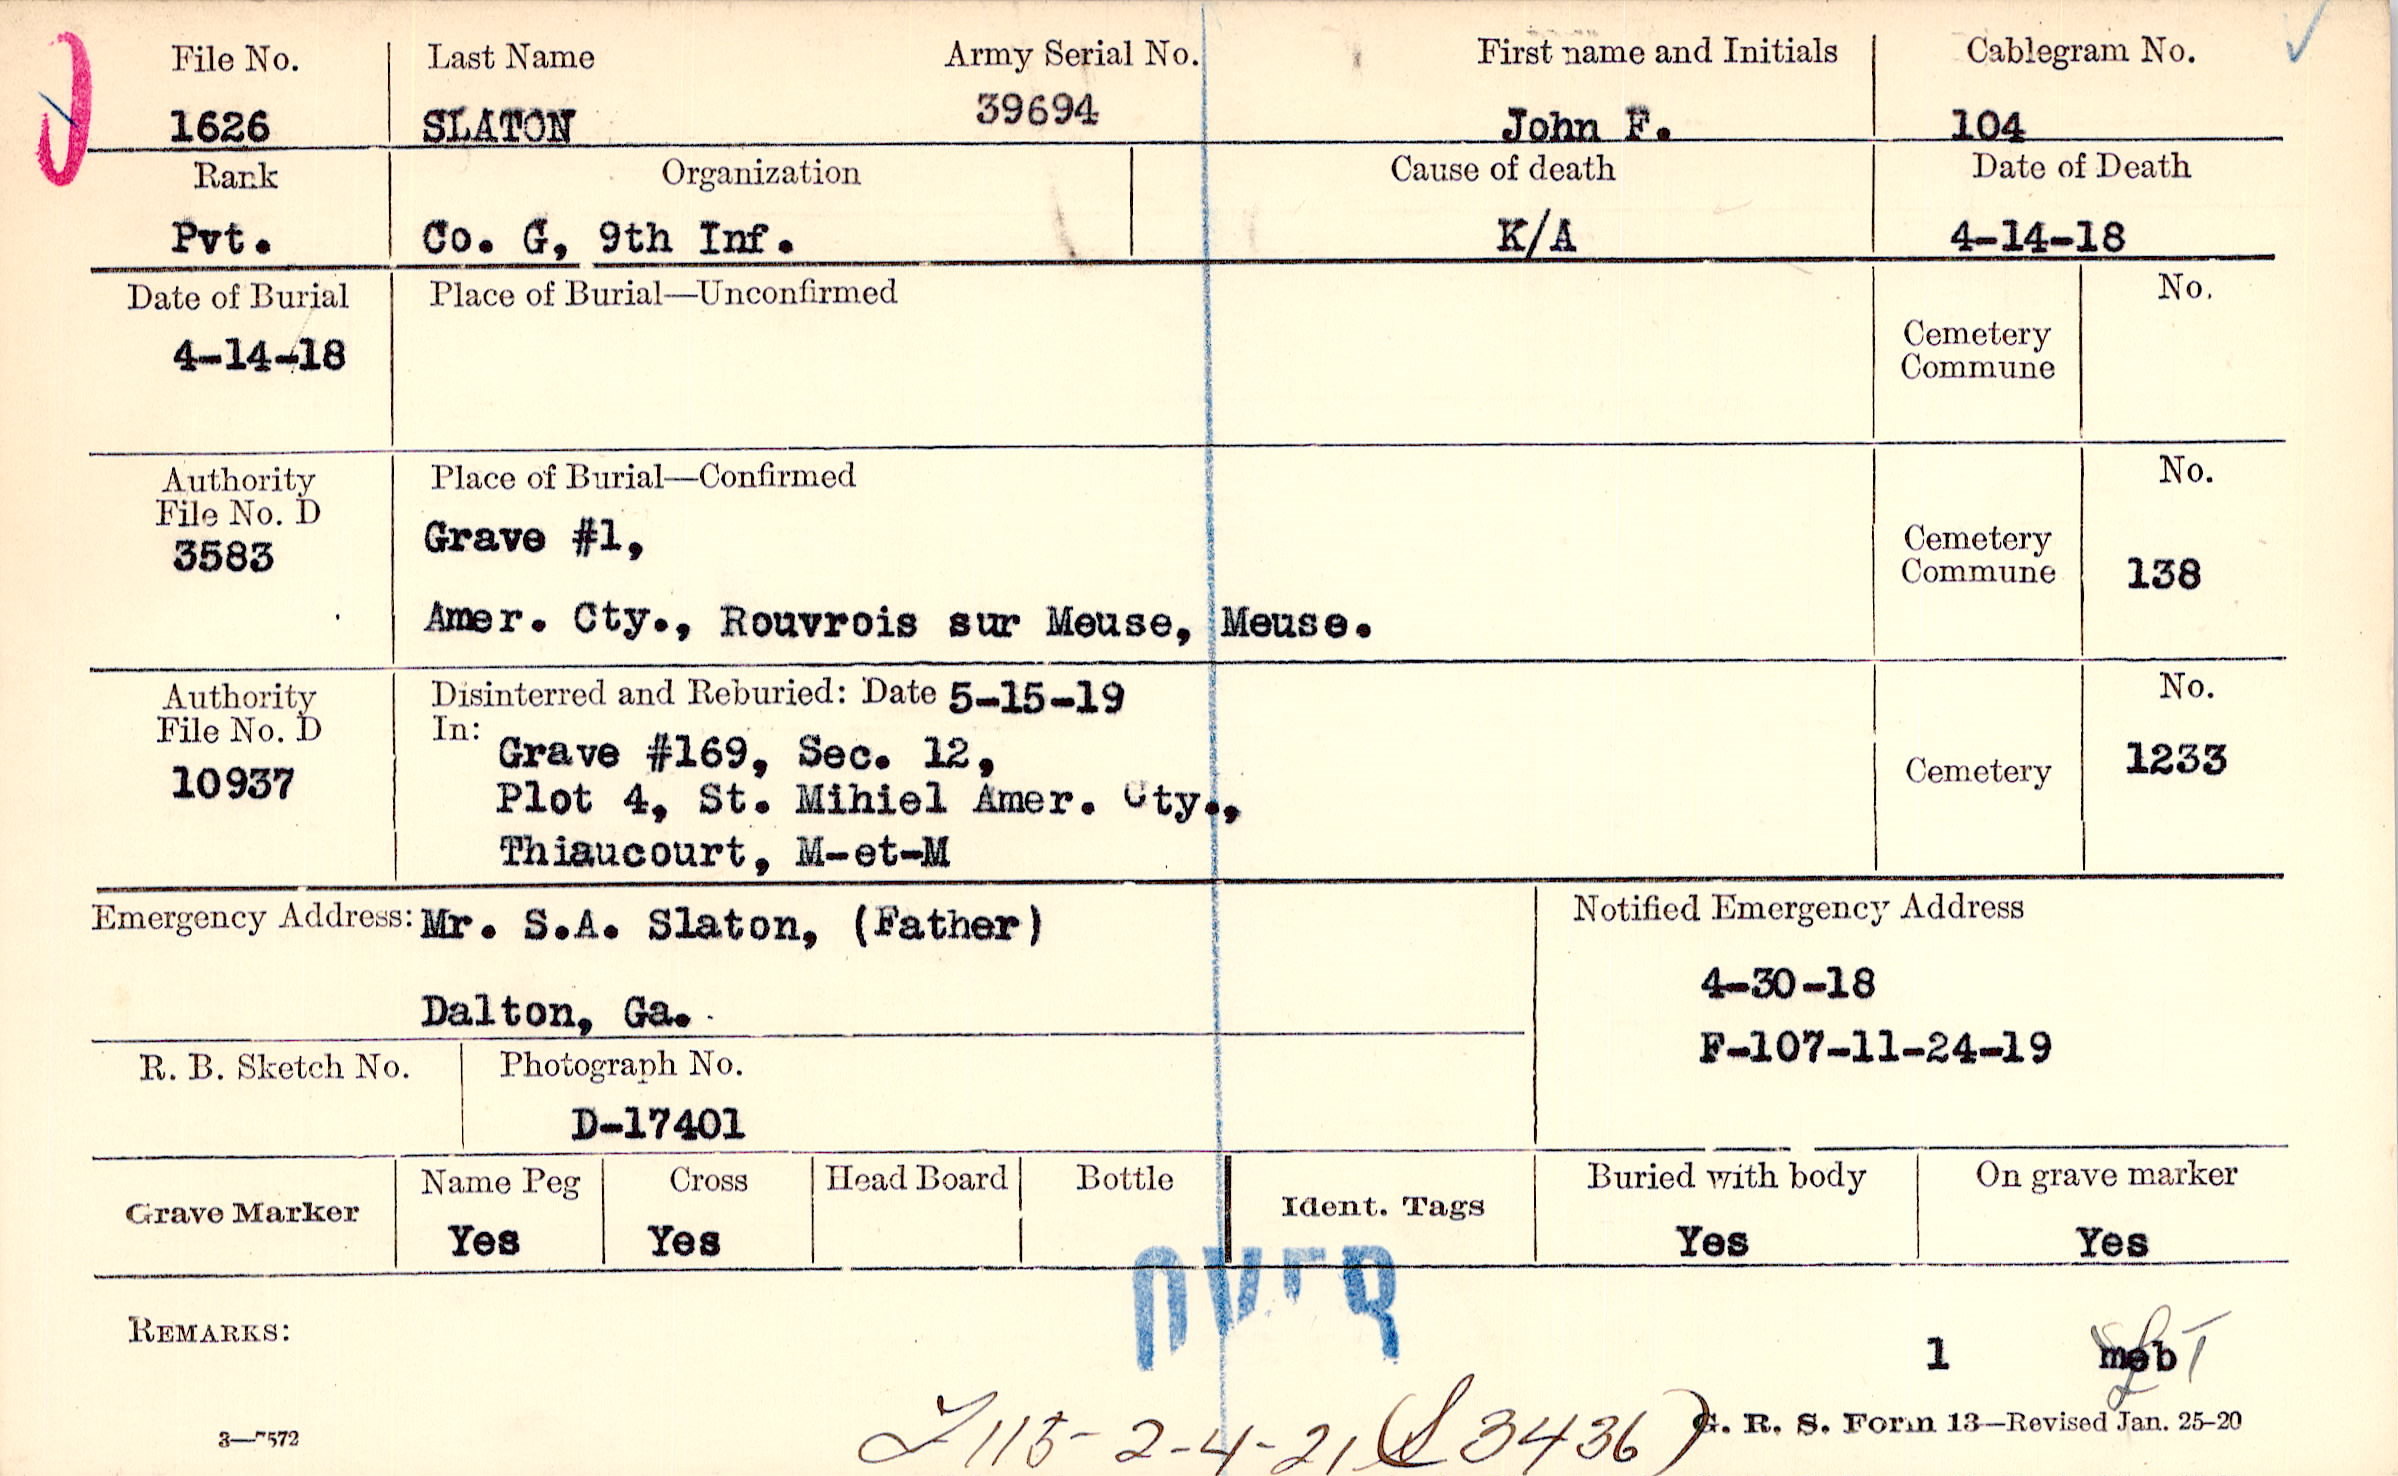 File No. Last Name Army Serial No. First name and Initials Cablegram No.
1626 SLATON 39694 John F. 104
Rank Organization Cause of death Date of Death
Pvt. Co. G, 9th Inf. K/A 4-14-18
Date of Burial Place of Burial—Unconfirmed No.
4-14-18
Cemetery
Commune
Authority Place of Burial—Confirmed No.
File No. D
3583 Grave #1,
Cemetery
Commune 138
Amer. Cty., Rouvrois sur Meuse, Meuse.
Authority Disinterred and Reburied: Date 5-15-19 No.
File No. D In:
10937 Grave #169, Sec. 12, Cemetery 1233
Plot 4, St. Mihiel Amer. Cty.,
Thiaucourt, M-et-M
Emergency Address: Mr. S.A. Slaton, (Father) Notified Emergency Address
4-30-18
Dalton, Ga.
F-107-11-24-19
R. B. Sketch No. Photograph No.
D-17401
Grave Marker Name Peg Cross Head Board Bottle Ident. Tags Buried with body On grave marker
Yes Yes Yes Yes
OVER
REMARKS:
1 meb
3—7572 G. R. S. Form 13—Revised Jan. 25-20
115-2-4-21 (S 3436)